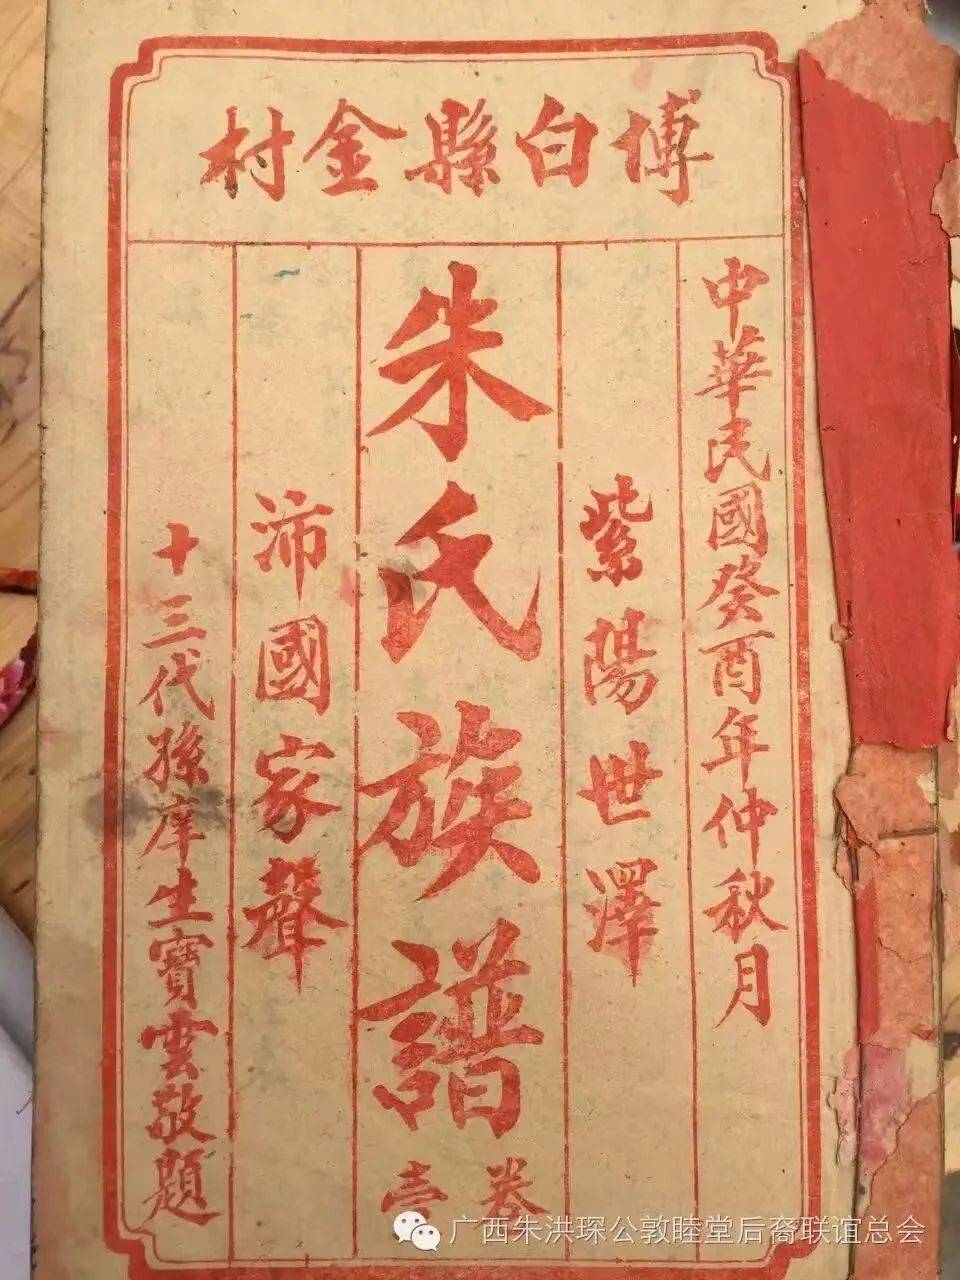 博白縣金村
中華民國癸酉年仲秋月
紫陽世澤
朱氏族譜
卷壹
沛國家聲
十三代孫庠生寶雲敬題
广西朱洪琛公敦睦堂后裔联谊总会